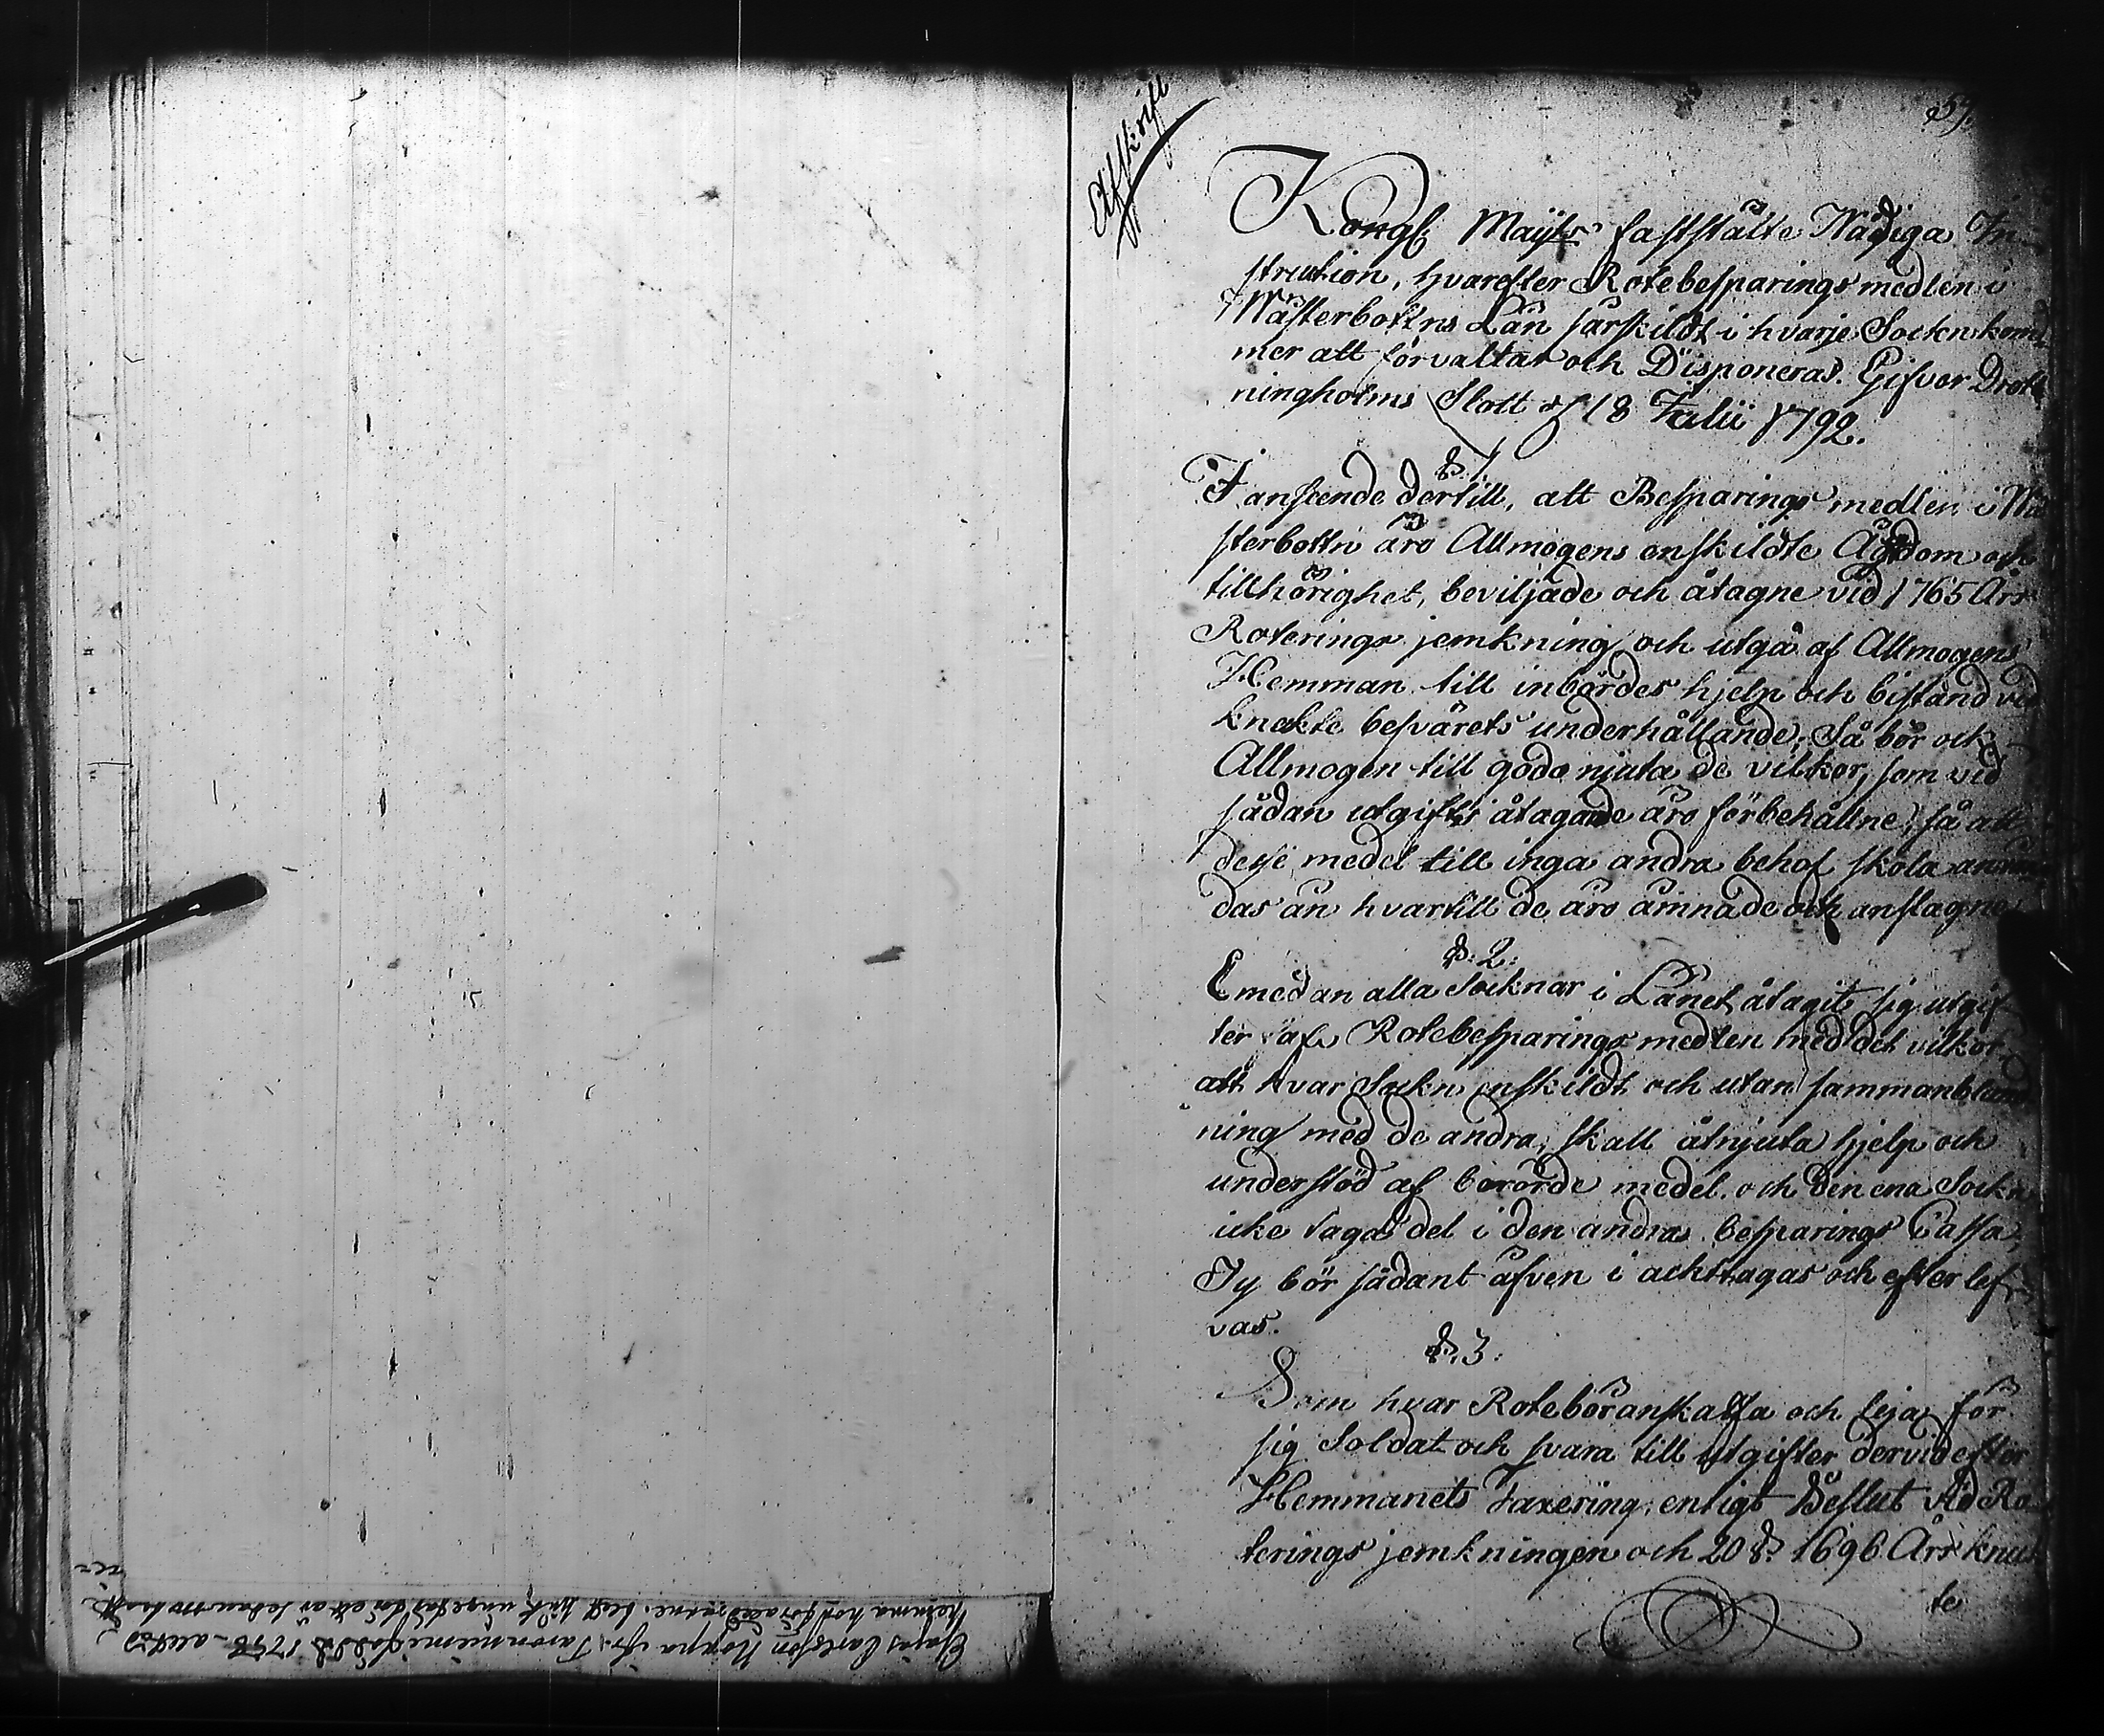 Afskrift
59.
Kongl Maijts faststälte Nådiga In-
struction, hvarefter Rotebesparings medlen i
Wästerbottns Län särskildt i hvarje Sockn kom-
mer att förvaltas och Disponeras. Gifver Drott
ningholms Slott d 18 Julii 1792.
§. 1.
I anseende dertill, att Besparings medlen i Wä
sterbottn äro Allmogens enskildte Ägdom och
tillhörighet, beviljade och åtagne vid 1765 Års
Roterings jemkning och utgå af Allmogens
Hemman till inbördes hjelp och bistånd vid
knekte besvärets underhållande, Så bör och
Allmogen till godo njuta de vilkor, som vid
sådan utgifts åtagande äro förbehållne, så att
desse medel till inga andra behof skola använ
das än hvartill de äro ämnade och anslagne
§. 2.
Emedan alla Socknar i Länet åtagit sig utgif-
ter af Rotebesparings medlen med det vilkor,
att hvar Sockn enskildt och utan sammanbland
ning med de andra, skall åtnjuta hjelp och
understöd af berörde medel. och den ena Sockn
icke taga del i den andras besparings Cassa,
Ty bör sådant äfven i akttagas och efterlef-
vas.
§. 3.
Som hvar Rote bör anskaffa och leja för
sig Soldat och svara till utgifter dervid efter
Hemmanets Taxering, enligt Beslut vid Ro
terings jemkningen och 20 §. 1696 Års knek
te
Esaias Carlsson Noppa fr. Tavonniemi född 1748
hemma hos föräldrarne. Sest sjuk ungefär för ett år sedan